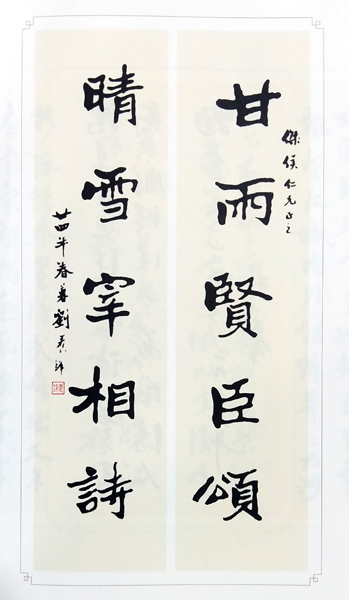 傑侯仁兄正之
甘雨賢臣頌
晴雪宰相詩
廿四年春暮劉